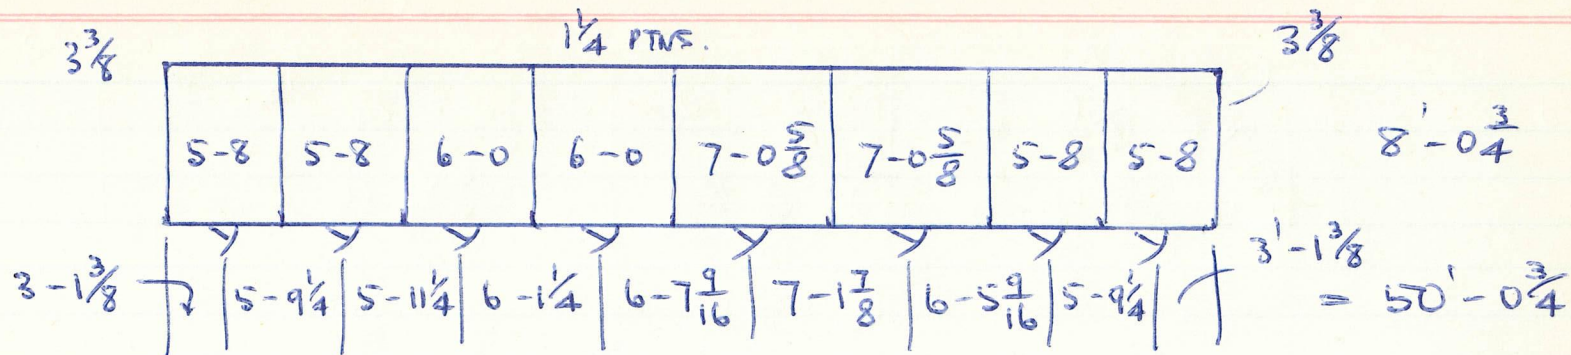 3 3/8 1 1/4 PTNS. 3 3/8
5-8 5-8 6-0 6-0 7-0 5/8 7-0 5/8 5-8 5-8 8'-0 3/4
3'-1 3/8
3-1 3/8 5-9 1/4 5-11 1/4 6-1 1/4 6-7 9/16 7-1 7/8 6-5 9/16 5-9 1/4 = 50'-0 3/4